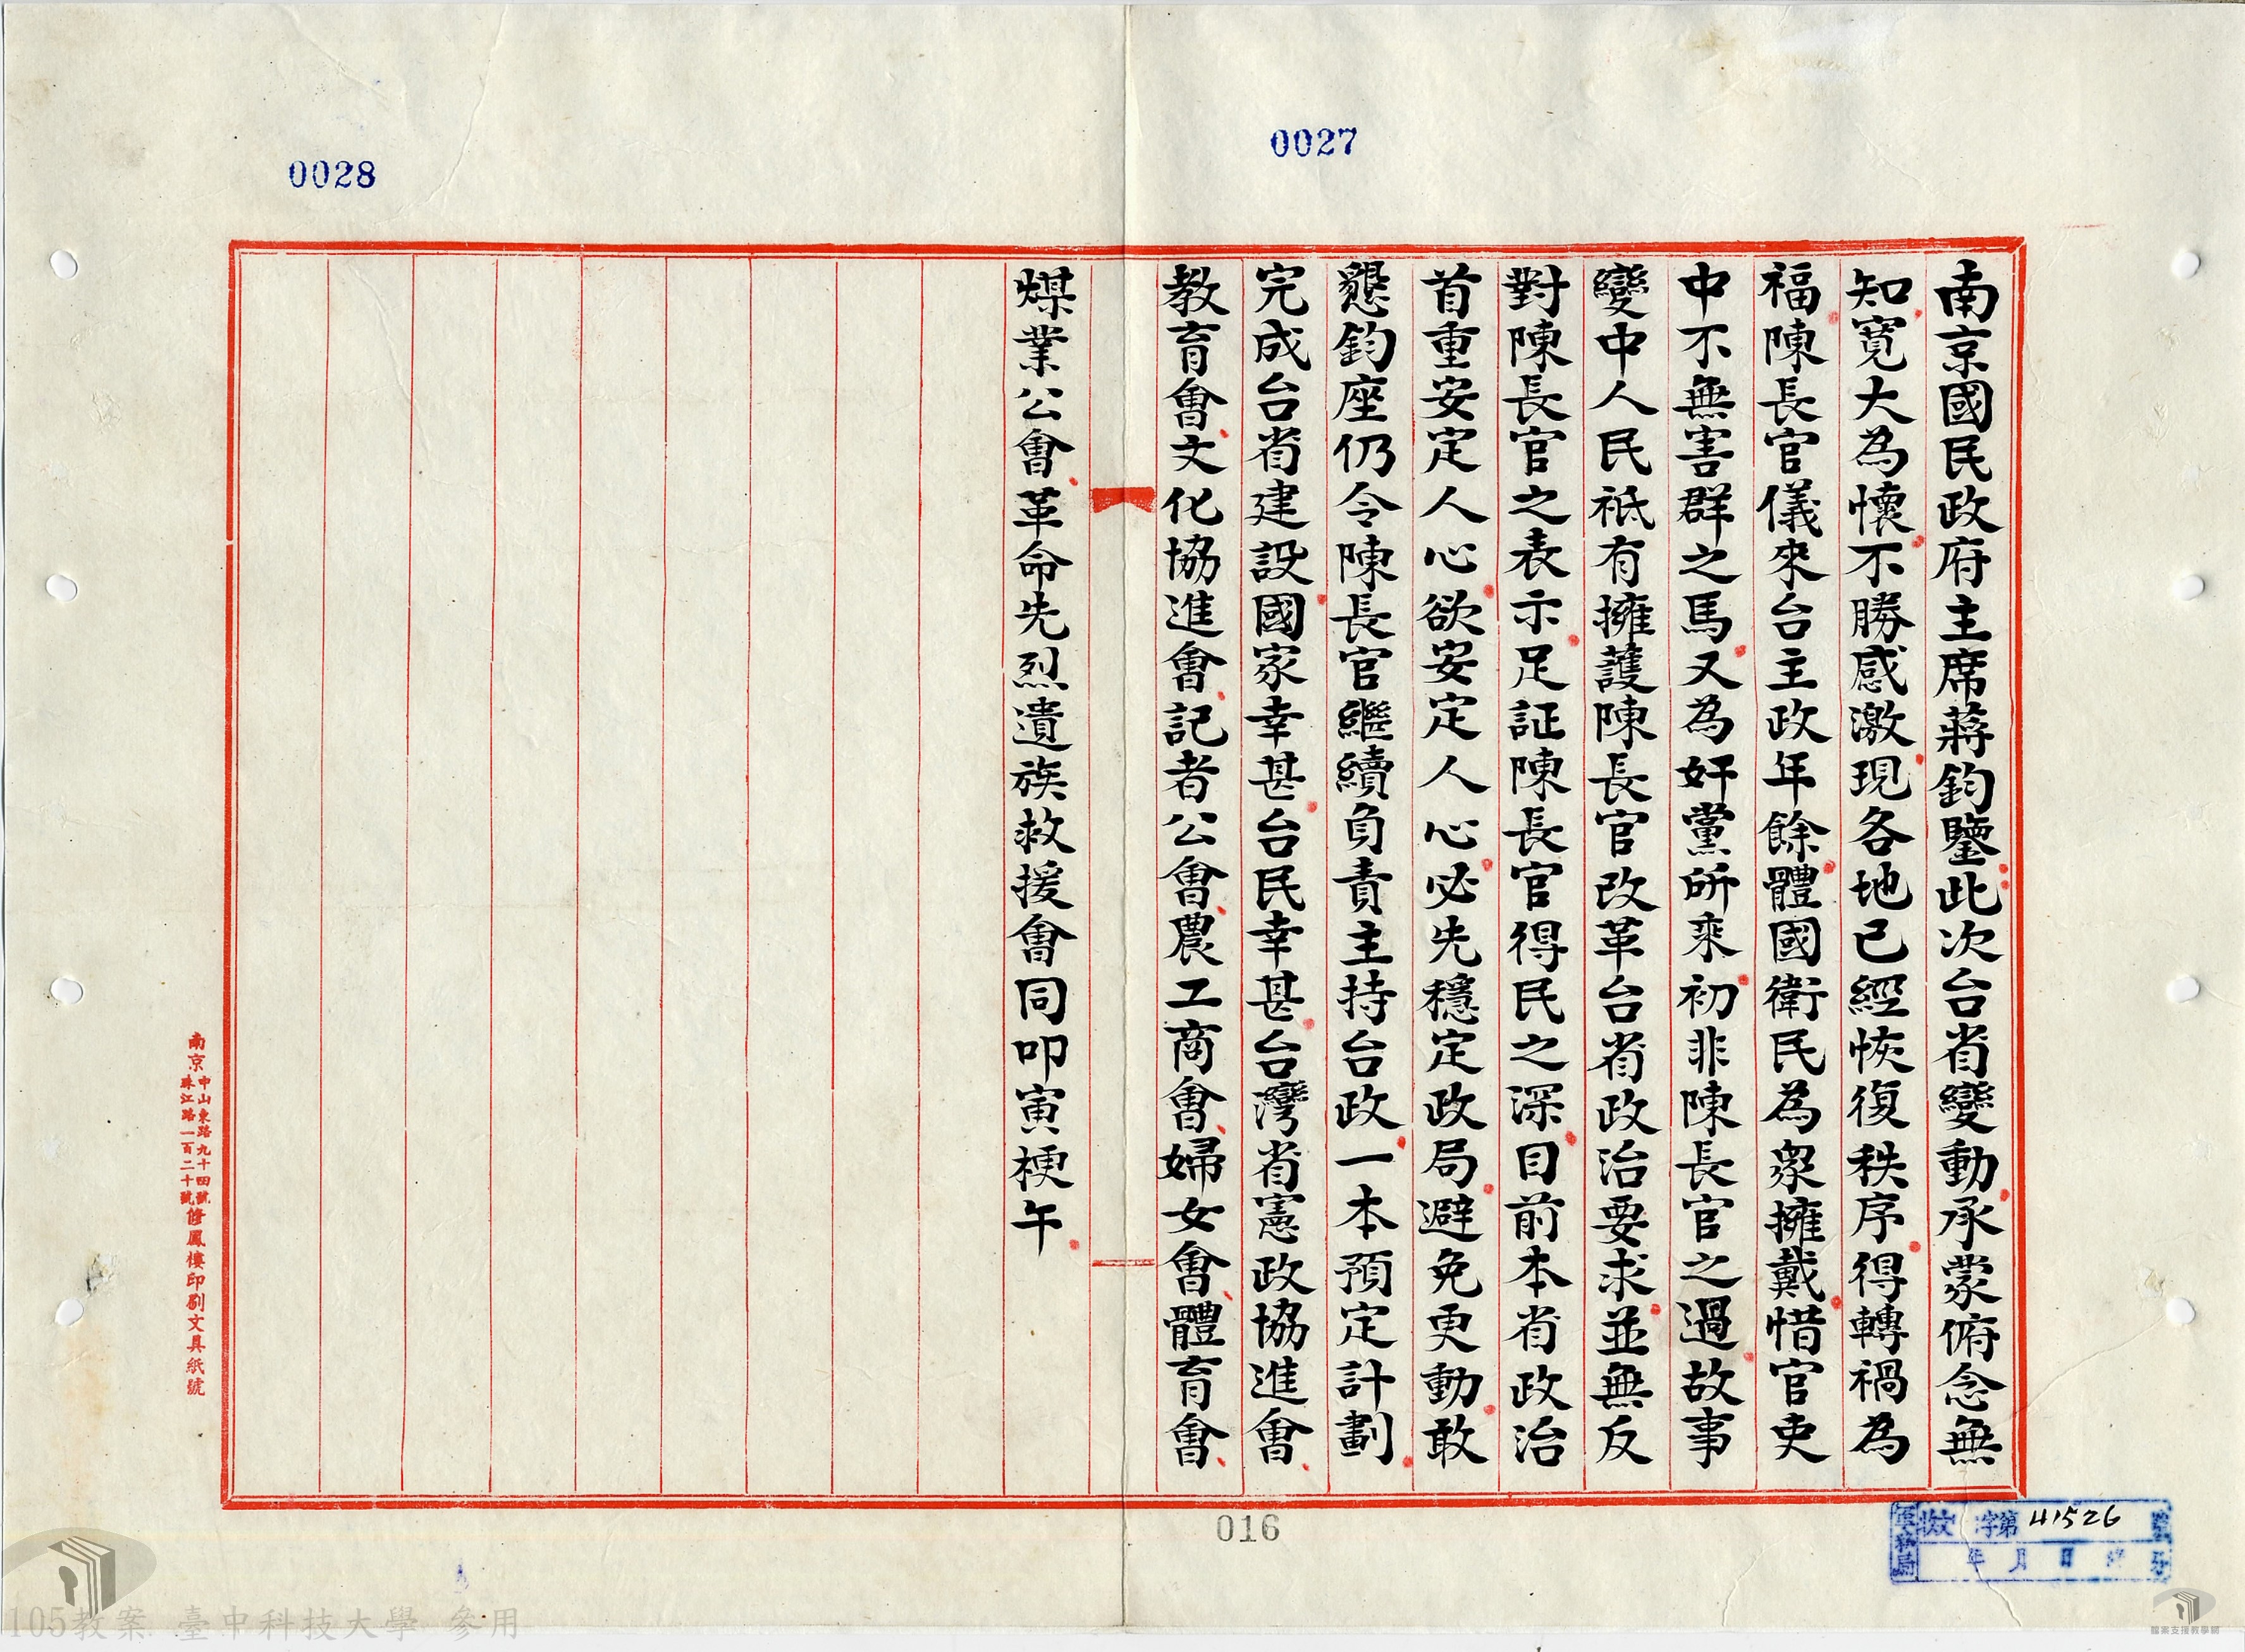 0027
0028
南京國民政府主席蔣鈞鑒此次台省變動承蒙俯念無
知寬大為懷不勝感激現各地已經恢復秩序得轉禍為
福陳長官儀來台主政年餘體國衛民為衆擁戴惜官吏
中不無害群之馬又為奸黨所乘初非陳長官之過故事
變中人民祇有擁護陳長官改革台省政治要求並無反
對陳長官之表示足証陳長官得民之深目前本省政治
首重安定人心欲安定人心必先穩定政局避免更動敢
懇鈞座仍令陳長官繼續負責主持台政一本預定計劃
完成台省建設國家幸甚台民幸甚台灣省憲政協進會
教育會文化協進會記者公會農工商會婦女會體育會
煤業公會革命先烈遺族救援會同叩寅梗午
南京中山東路九十四號
珠江路一百二十號修鳳樓印刷文具紙號
016
字第41526
年 月 日
105教案 臺中科技大學 參用
檔案支援教學網